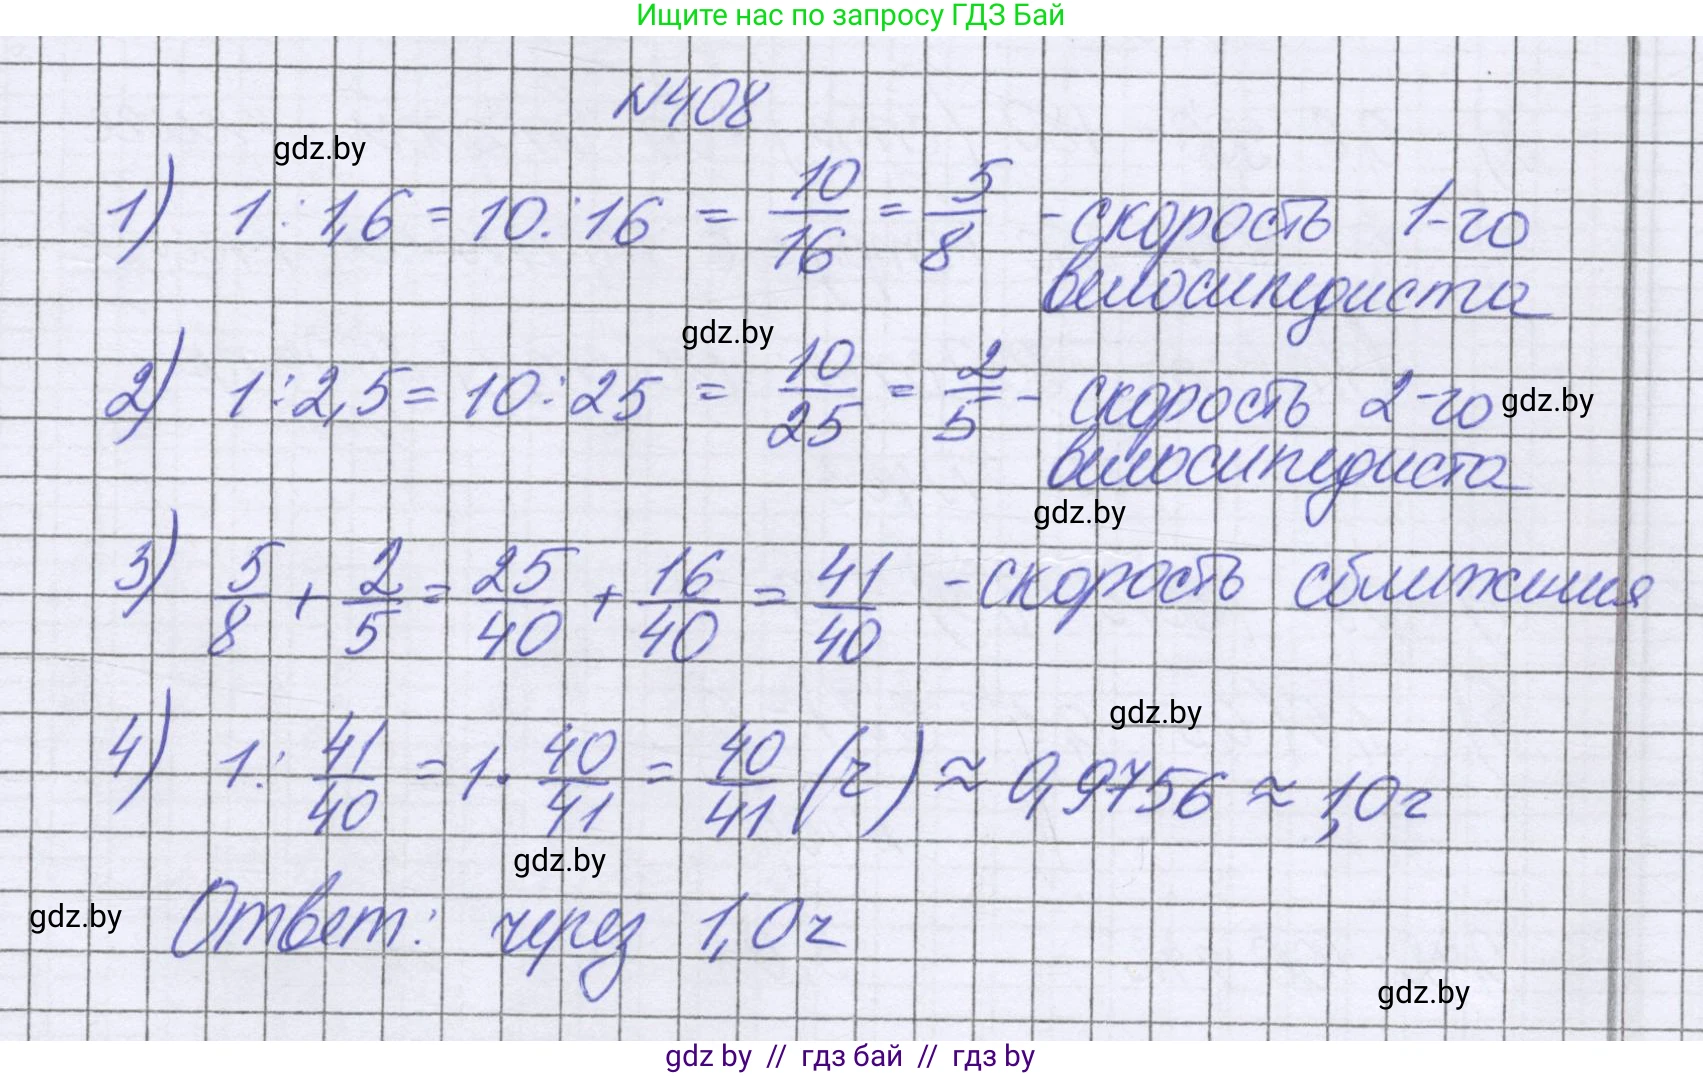 Ищите нас по запросу ГДЗ Бай
№408
gdz.by
1) 1 : 1,6 = 10 : 16 = 10/16 = 5/8 - скорость 1-го
велосипедиста
gdz.by
2) 1 : 2,5 = 10 : 25 = 10/25 = 2/5 - скорость 2-го
gdz.by
велосипедиста
gdz.by
3) 5/8 + 2/5 = 25/40 + 16/40 = 41/40 - скорость сближения
gdz.by
4) 1 : 41/40 = 1 · 40/41 = 40/41 (ч) ≈ 0,9756 ≈ 1,0 ч
gdz.by
gdz.by
Ответ: через 1,0 ч
gdz.by
gdz by // гдз бай // гдз by